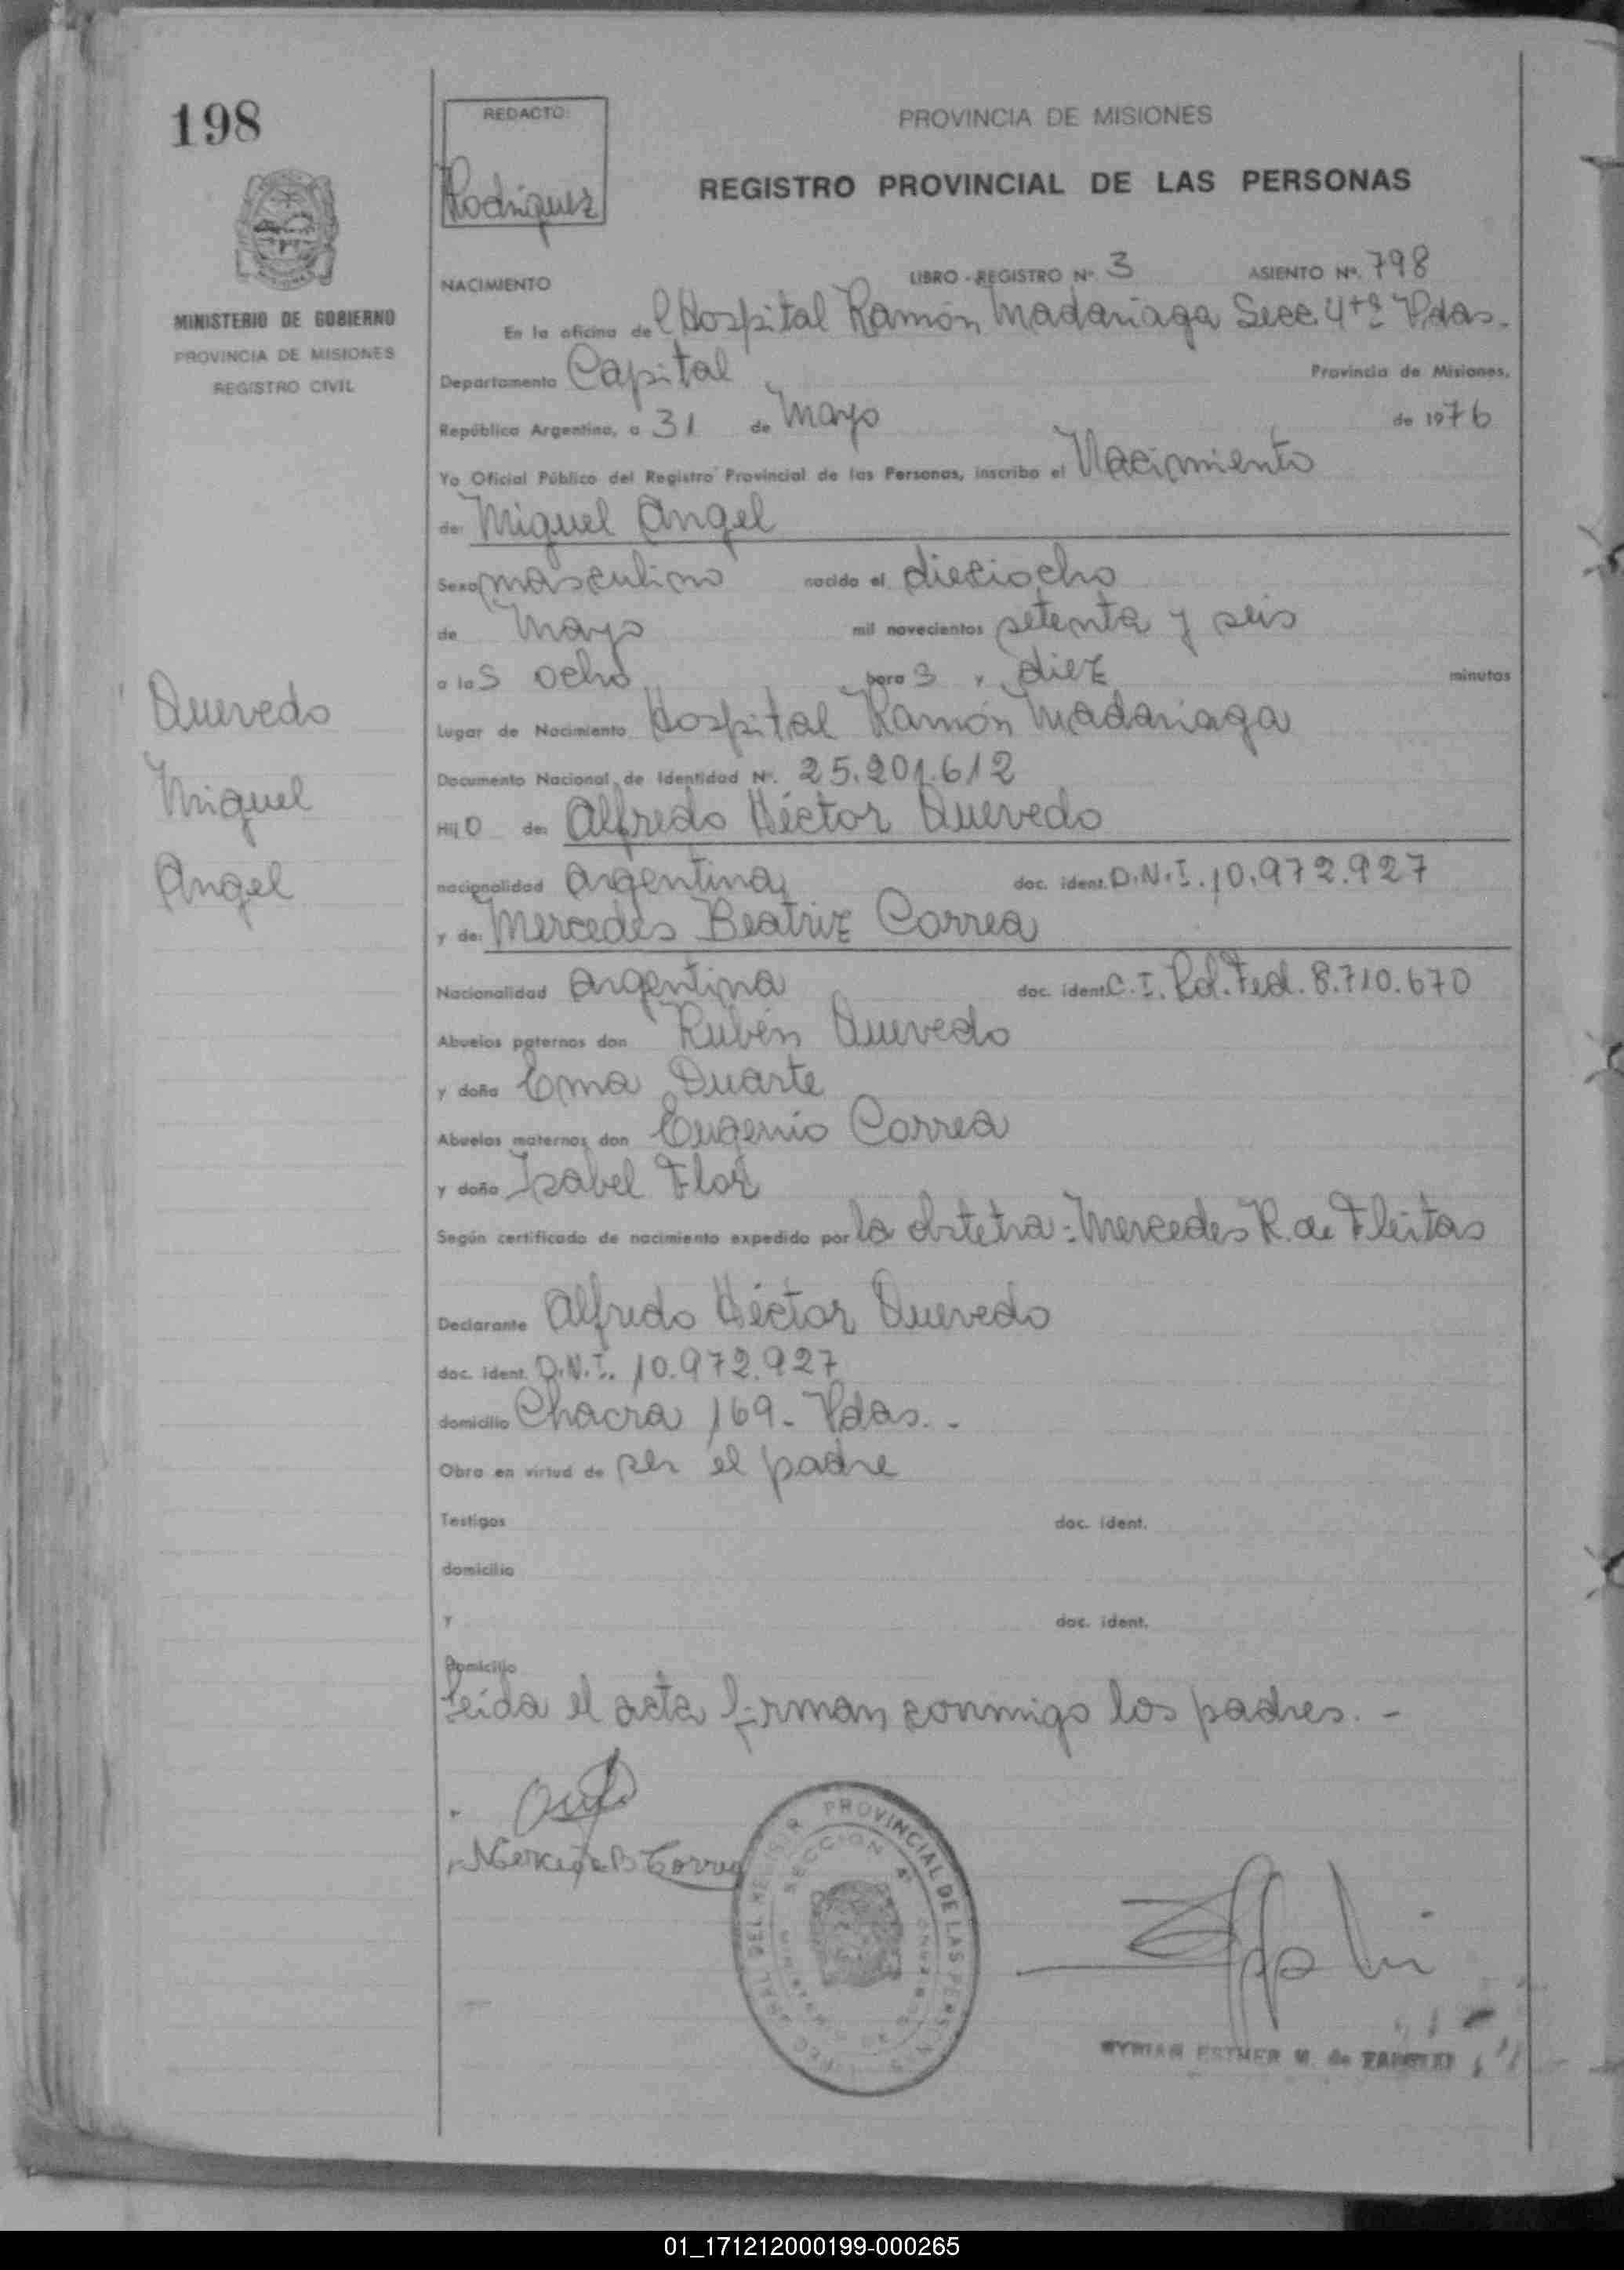 198
REDACTO:
Rodriguez
PROVINCIA DE MISIONES
REGISTRO PROVINCIAL DE LAS PERSONAS
MINISTERIO DE GOBIERNO
PROVINCIA DE MISIONES
REGISTRO CIVIL
NACIMIENTO LIBRO - REGISTRO Nº. 3 ASIENTO Nº. 798
En la oficina del Hospital Ramón Madariaga Secc. 4ta Pdas.
Departamento Capital Provincia de Misiones,
República Argentina, a 31 de Mayo de 1976
Yo Oficial Público del Registro Provincial de las Personas, inscribo el Nacimiento
de: Miguel Angel
Sexo masculino nacido el dieciocho
de Mayo mil novecientos setenta y seis
a las ocho horas y diez minutos
Quevedo
Miguel
Angel
Lugar de Nacimiento Hospital Ramón Madariaga
Documento Nacional de Identidad Nº. 25.201.612
Hijo de: Alfredo Héctor Quevedo
nacionalidad argentina doc. ident. D.N.I. 10.972.927
y de: Mercedes Beatriz Correa
Nacionalidad argentina doc. ident. C.I. Pol. Fed. 8.710.670
Abuelos paternos don Rubén Quevedo
y doña Ema Duarte
Abuelos maternos don Eugenio Correa
y doña Isabel Flor
Según certificado de nacimiento expedido por la obstetra: Mercedes R. de Fleitas
Declarante Alfredo Héctor Quevedo
doc. ident. D.N.I. 10.972.927
domicilio Chacra 169 - Pdas. -
Obra en virtud de ser el padre
Testigos doc. ident.
domicilio
y doc. ident.
domicilio
Leida el acta firman conmigo los padres. -
Mercedes B Correa
PROVINCIAL DE LAS PERSONAS
SECCION 4ª
MYRIAN ESTHER M. de
01_171212000199-000265